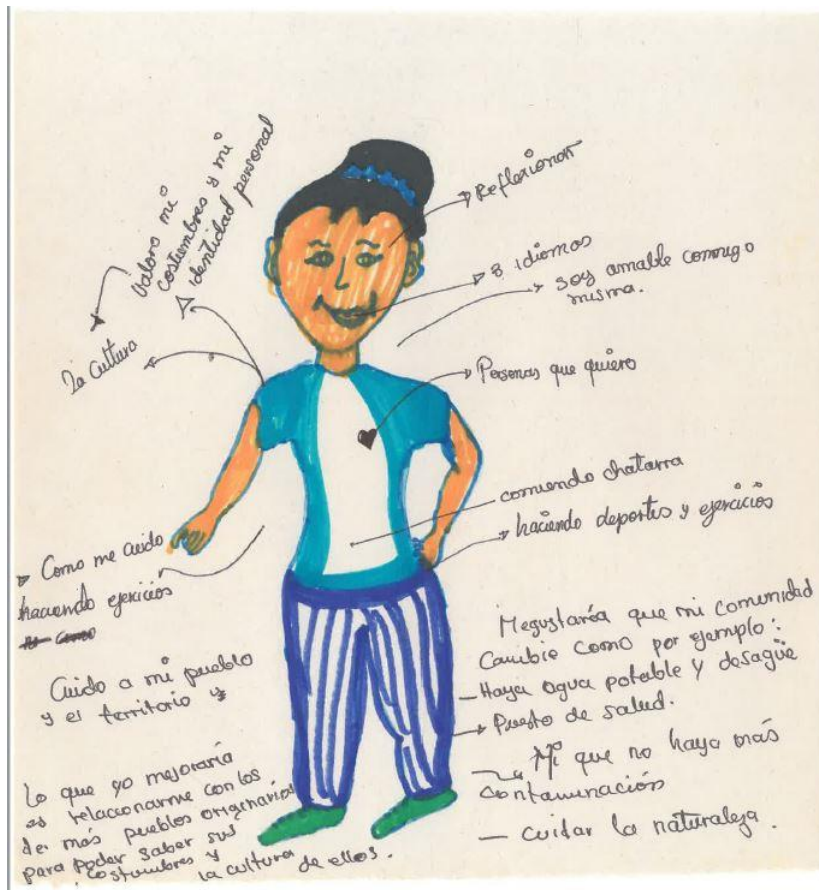 Valoro mi
costumbres y mi
identidad personal
la cultura
Reflexionar
3 idiomas
soy amable conmigo
misma.
Personas que quiero
comiendo chatarra
haciendo deportes y ejercicios
Como me cuido
haciendo ejercicios
Cuido a mi pueblo
y el territorio y
Lo que yo mejoraría
es relacionarme con los
de más pueblos originarios
para poder saber sus
costumbres y
la cultura de ellos.
Megustaría que mi comunidad
Cambie como por ejemplo:
- Haya agua potable y desagüe
Puesto de salud.
Mi que no haya más
contaminación
- cuidar la naturaleza.